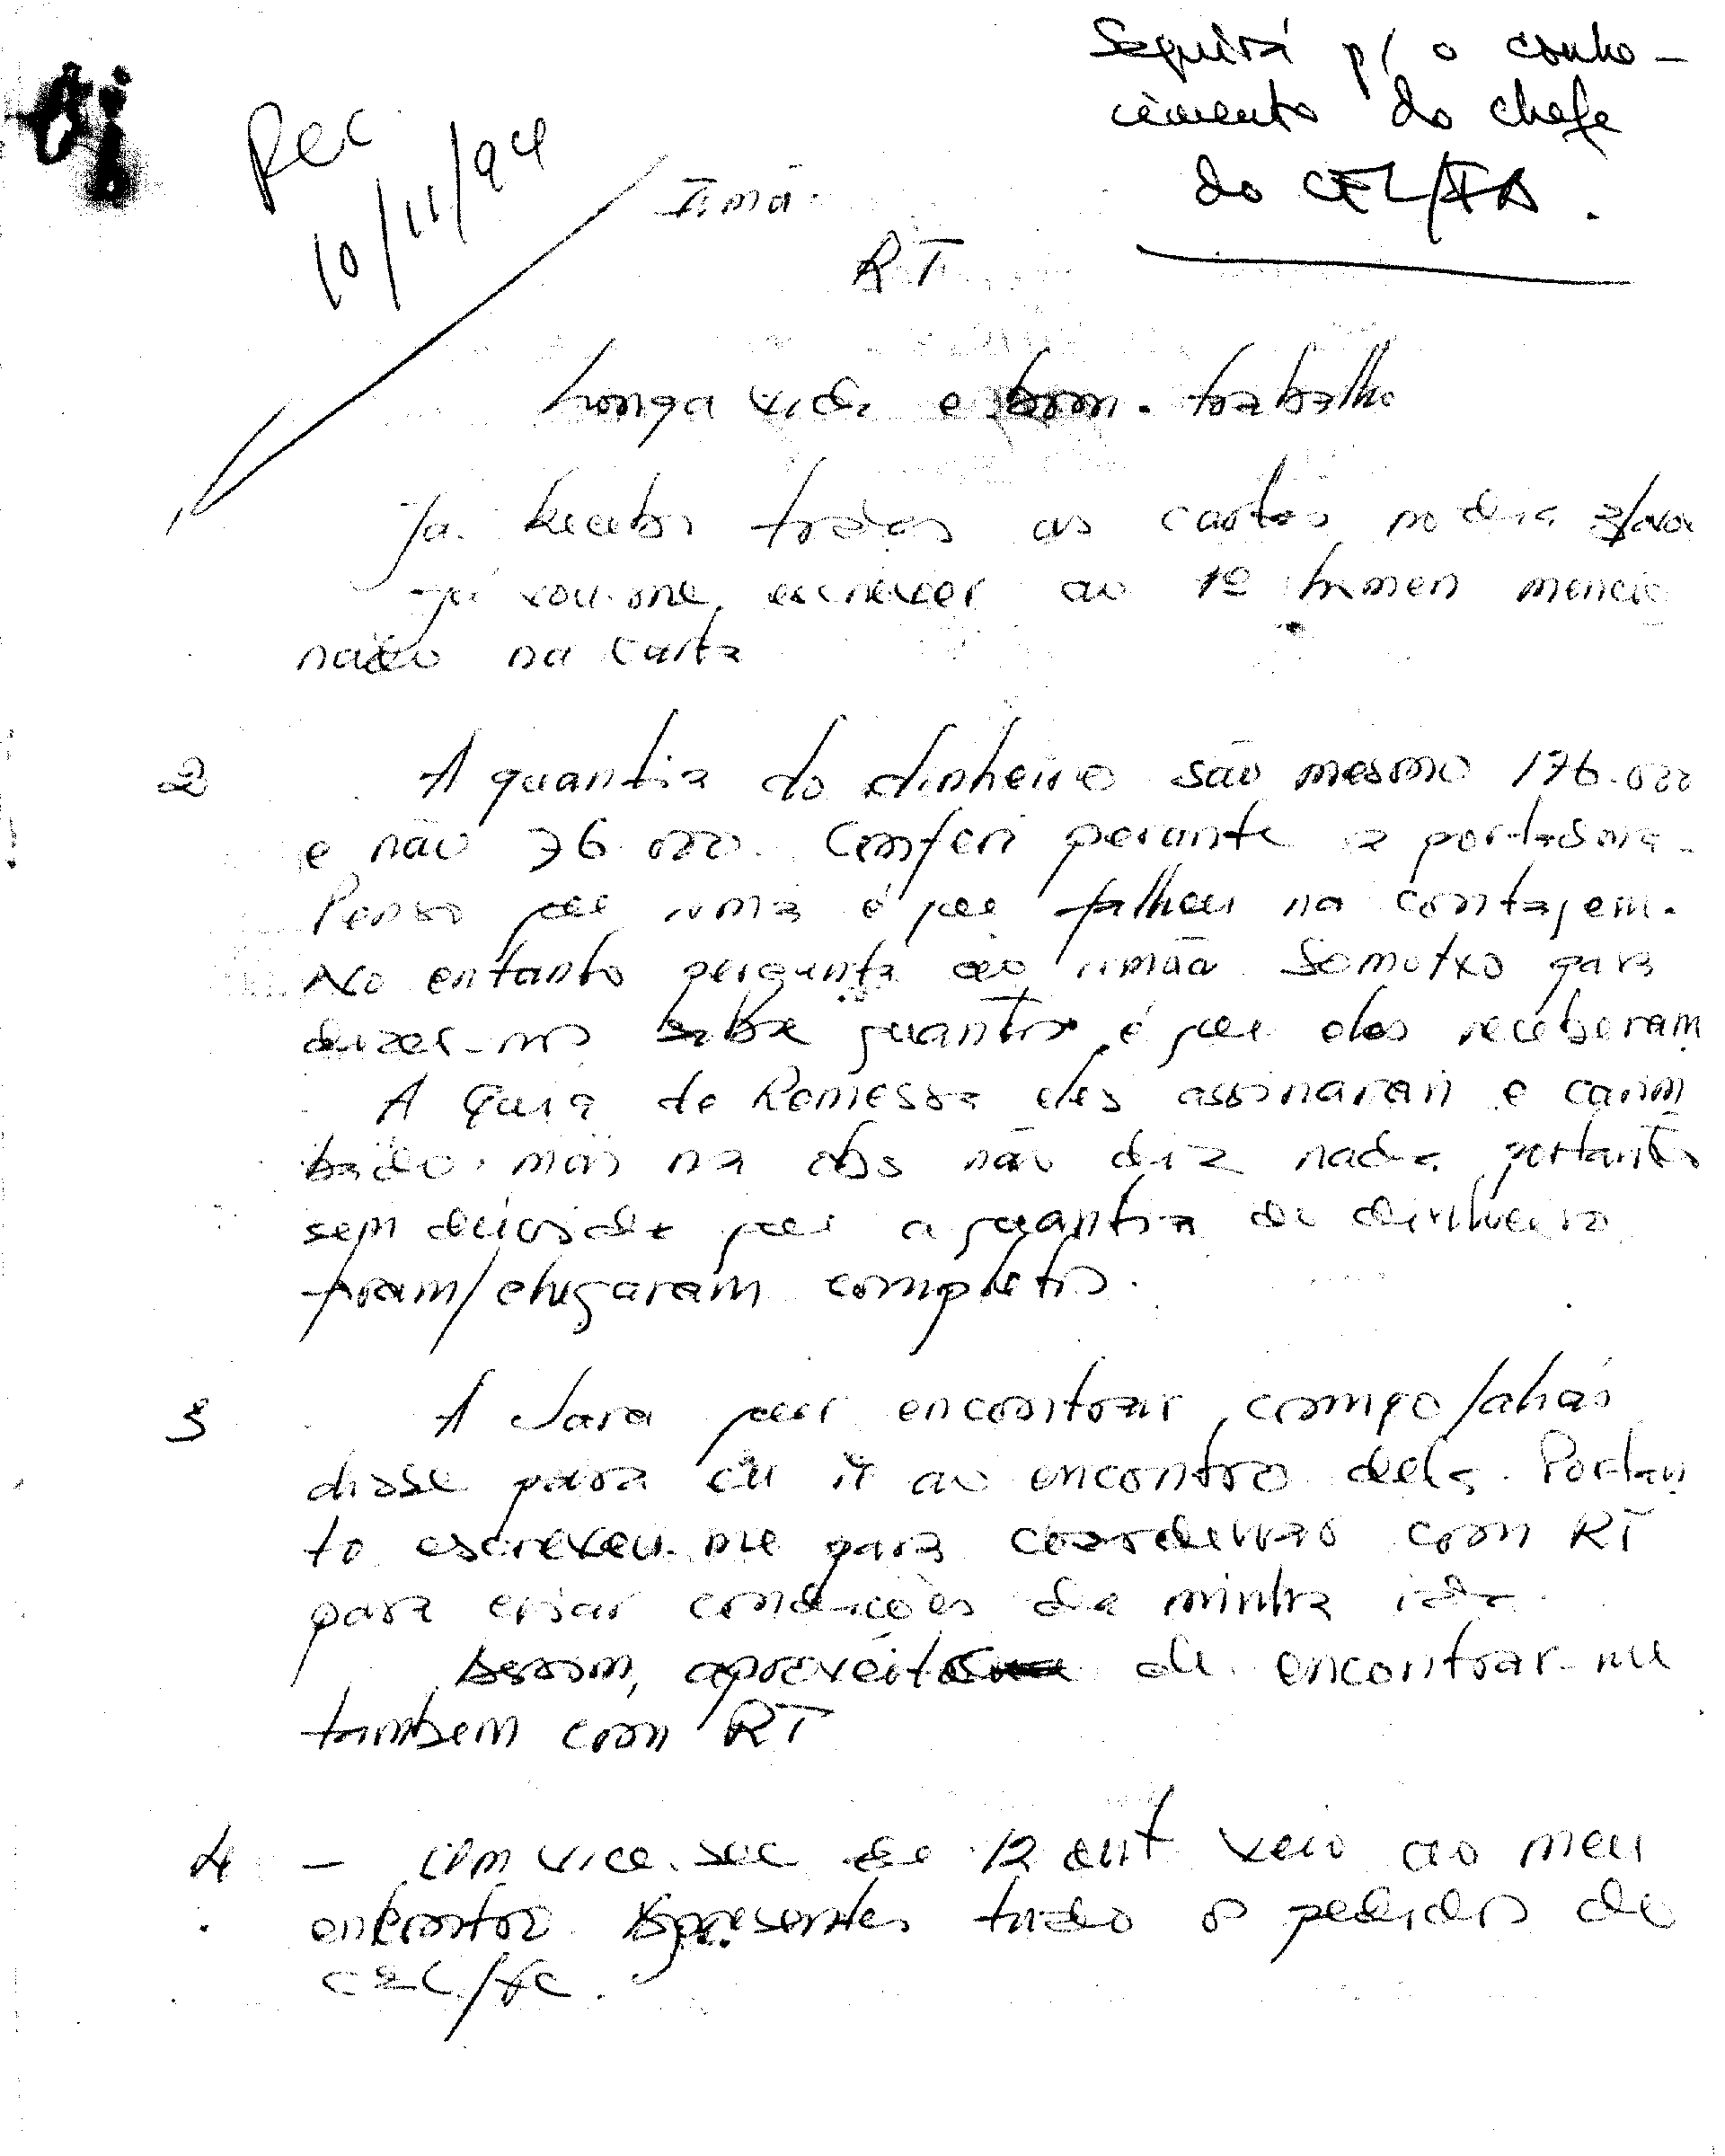 Seguirá p/ o conhe-
cimento do chefe
do CEL/FA.
Rec.
10/11/94
Irmã
RT
Longa vida e bom trabalho
Já recebi todas as cartas
Já vou-me escrever ao 1º homen mencio
nado na carta
2 A quantia do dinheiro são mesmo 176.000
e não 76.000. Conferi perante a portadora.
Penso que irmã é que falhou na contagem.
No entanto pergunta ao irmão Somotxo para
dizer-nos sobre quantos é que eles receberam
A Guia de Remessa eles assinaram e carim
bado mas na obs não diz nada, portanto
sem dúvida que a quantia de dinheiro
foram/chegaram completos.
3 A Sara quer encontrar comigo/aliás
disse para eu ir ao encontro dela. Portan
to escreveu-me para coordenar com RT
para criar condições da minha ida.
Assim, aproveito de encontrar-me
tambem com RT
4 - Um vice-sec de 12 out veio ao meu
encontro. Apresentei tudo o pedido do